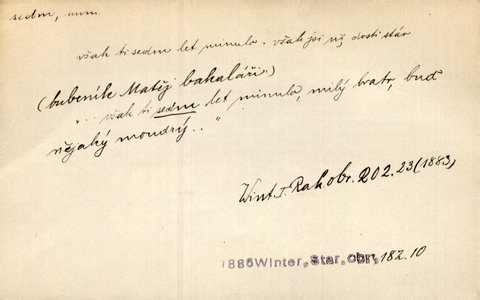 sedm, num.
však ti sedm let minulo. však jsi už dosti stár
(bubeník Matěj bakaláři.)
"... však ti sedm let minulo, milý bratr, buď
nějaký moudrý..."
Wint. I. Rak. obr. 202. 23 (1883)
1886 Winter, Star. obr. 182. 10